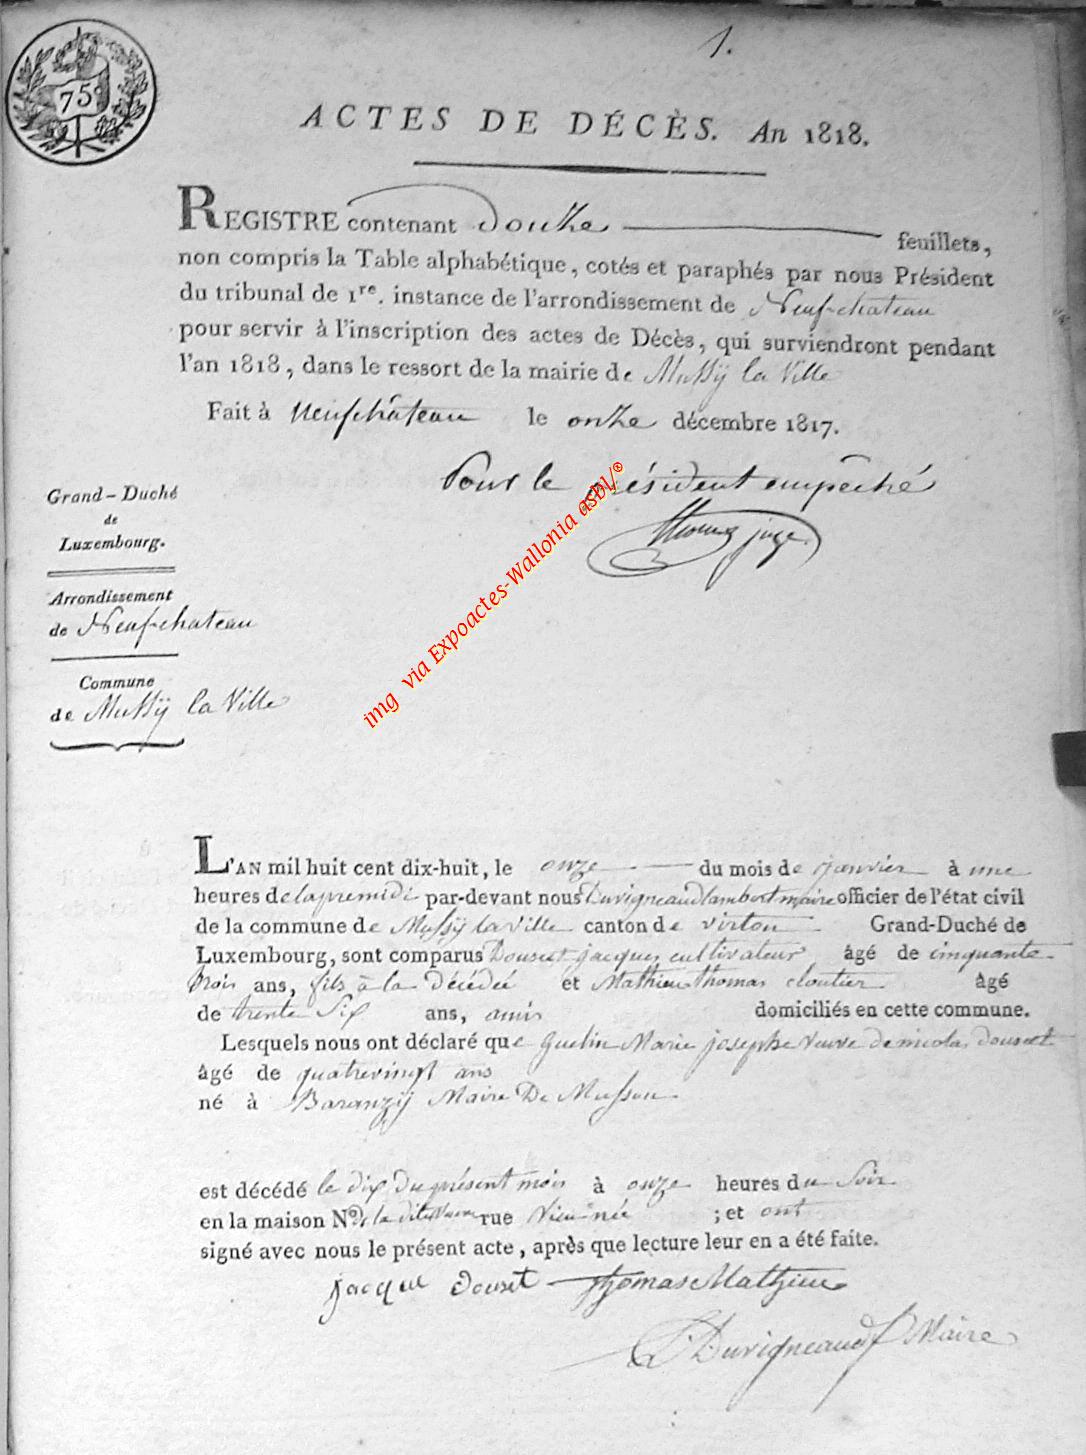 1.
75
ACTES DE DÉCÈS. An 1818.
REGISTRE contenant Douze feuillets,
non compris la Table alphabétique, cotés et paraphés par nous Président
du tribunal de 1re. instance de l'arrondissement de Neufchateau
pour servir à l'inscription des actes de Décès, qui surviendront pendant
l'an 1818, dans le ressort de la mairie de Mussÿ la Ville
Fait à Neufchâteau le onze décembre 1817.
Pour le président empêché
juge
Grand-Duché
de
Luxembourg.
Arrondissement
de Neufchateau
Commune
de Mussÿ la Ville
img via Expoactes-Wallonia asbl/®
L'AN mil huit cent dix-huit, le onze du mois de janvier à une
heures de lapremidi par-devant nous Duvigneaud lambert maire officier de l'état civil
de la commune de Mussÿ la ville canton de virton Grand-Duché de
Luxembourg, sont comparus Douset jacques cultivateur âgé de cinquante
trois ans, fils à la Décédée et Mathieu thomas cloutier âgé
de trente Six ans, amis domiciliés en cette commune.
Lesquels nous ont déclaré que Guelin Marie josephe veuve de nicolas douset
âgé de quatrevingt ans
né à Baranzÿ Mairie De Musson
est décédé le dix du présent mois à onze heures du Soir
en la maison No. de la dite rue ; et ont
signé avec nous le présent acte, après que lecture leur en a été faite.
jacque douset thomas Mathieu
Duvigneaud Maire